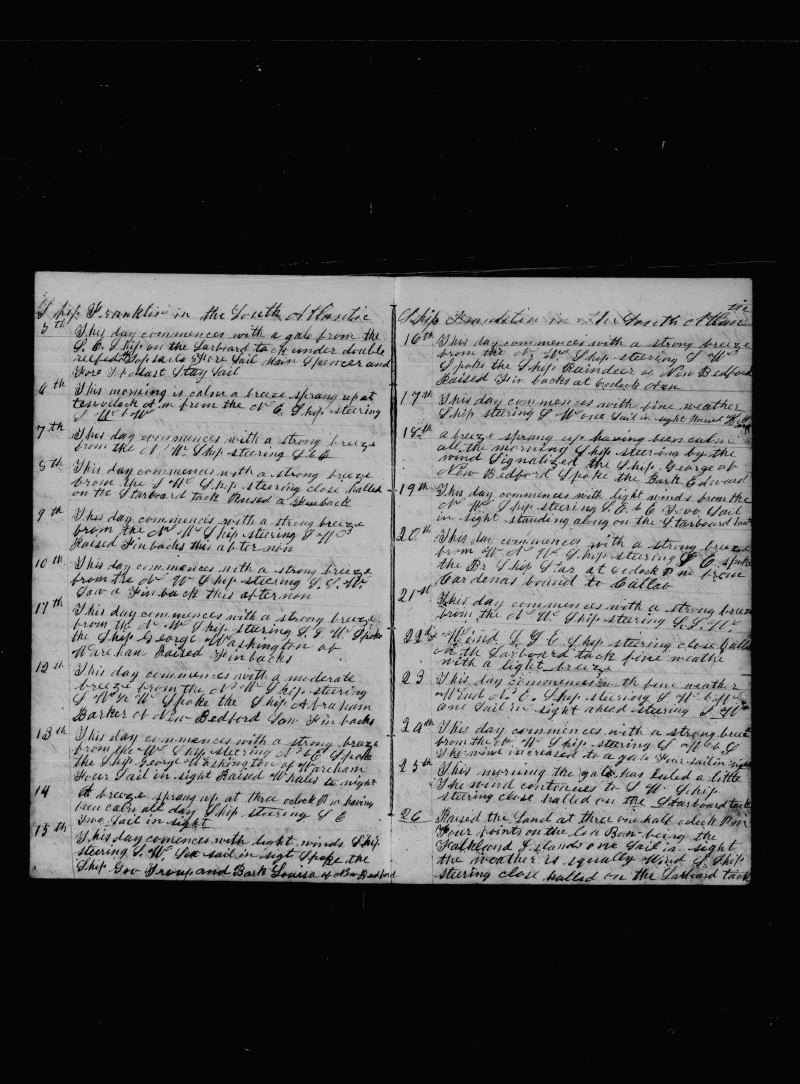 Ship Franklin in the South Atlantic
5th This day commences with a gale from the
S. E. Ship on the Larboard tack under double
reefed Topsails Fore Sail Main Spencer and
Fore Top Mast Stay Sail
6th This morning is calm a breze sprang up at
ten oclock A.m from the N E. Ship steering
S W b W
7th This day commences with a strong breeze
from the N W. Ship steering S b E
8th This day commences with a strong breeze
from the S W. Ship steering close halled
on the Starboard tack Raised a Finback
9th This day commences with a strong breeze
from the N W Ship steering S W
Raised Finbacks this afternon
10th This day commences with a strong breeze
from the N W Ship steering S. S. W.
Saw a Finback this afternon
17th This day commences with a strong breeze
from the N W. Ship steering S. S W Spoke
the Ship George Washington of
Wareham Raised Finbacks
12th This day commences with a moderate
breeze from the N W Ship steering
S W b W Spoke the Ship Abraham
Barker of New Bedford Saw Finbacks
13th This day commences with a strong breze
from the W. Ship steering S b E Spoke
the Ship George Washington of Wareham
Four Sail in sight Raised Whales to night
14 A breeze sprang up at three oclock P.m having
ben calm all day Ship steering S E
Two Sail in sight
15th This day comences with light winds Ship
steering S. W. Six sail in sigt Spoke the
Ship Gov Troup and Bark Louisa of New Bedford
Ship Franklin in the South Atlantic
16th This day commences with a strong breeze
from the N W. Ship steering S W
Spoke the Ship Raindeer of New Bedford
Raised Fin backs at 6 oclock
17th This day commences with fine weather
Ship steering S W one Sail in sight
18th a breeze sprang up having been calm
all the morning Ship steering by the
wind Signalized the Ship George of
New Bedford Spoke the Bark Edward
19th This day commences with light winds from the
N W. Ship steering S. E. b E Two Sail
in sight standing along on the Starboard tack
20th This day commences with a strong breeze
from W N W. Ship steering S E. spoke
the Br Ship Star at 6 oclock P m from
Cardenas bound to Callao
21st This day commences with a strong breeze
from the N W Ship steering S. S. W.
22 Wind S. S E. Ship steering close halled
on th Larboard tack fine weathe
with a light breeze
23 This day commences with fine weather
Wind N. E. Ship steering S W b W
one Sail in sight ahead steering S W
24th This day commences with a strong breeze
from the N W Ship steering S W b S
The wind increased to a gale Four sail in sight
25th This morning the gale has luled a little
The wind contenues to S W Ship
steering close halled on the Starboard tack
26 Raised the Land at three one half oclock P m
Four points on the Lea Bow being the
Falkland Islands one Sail in sight
the weather is squally Wind S Ship
steering close halled on the Larboard tack